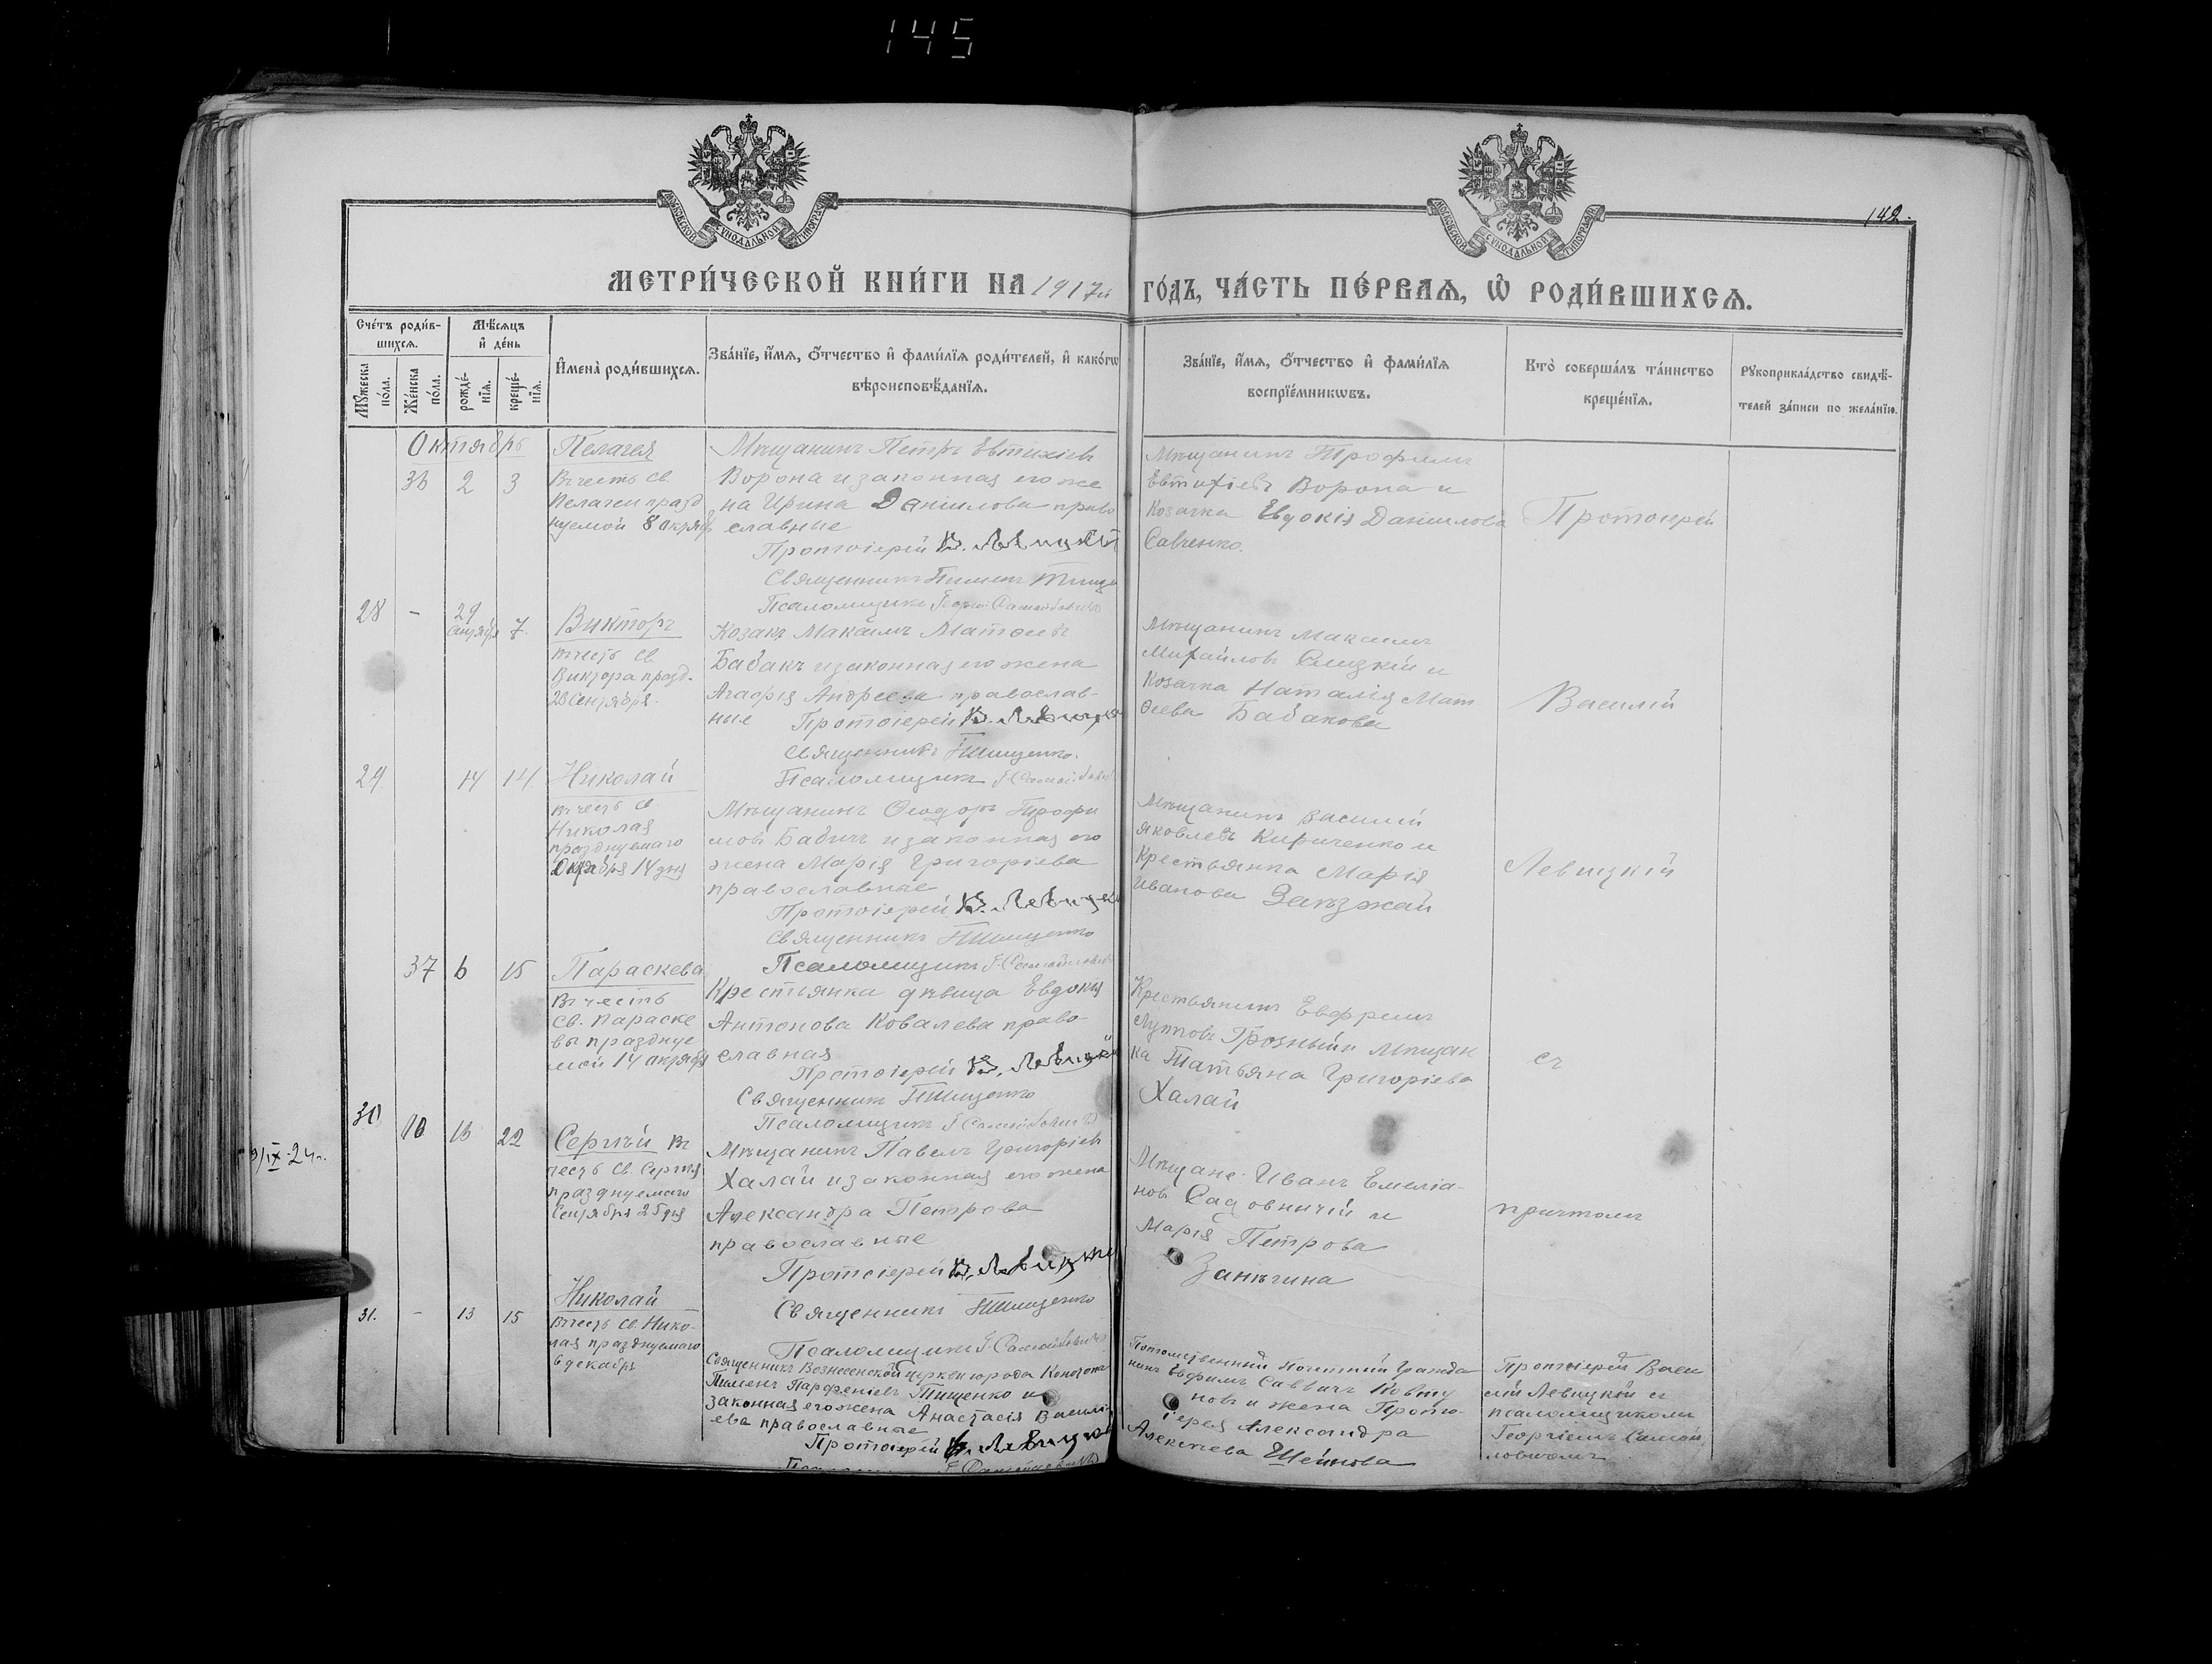 145
МОСКОВСКОЙ СУНОДАЛЬНОЙ ТИПОГРАФІИ
МОСКОВСКОЙ СУНОДАЛЬНОЙ ТИПОГРАФІИ
142.
МЕТРИ́ЧЕСКОЙ КНИ́ГИ НА 1917й ГО́ДЪ, ЧА́СТЬ ПЕ́РВАѦ, Ѡ҆ РОДИ́ВШИХСѦ.
Сче́тъ роди́в-
шихсѧ.
Мꙋ́жеска по́ла.
Же́нска по́ла.
Мѣ́сѧцъ
и҆ де́нь
рожде́-
нїѧ.
креще́-
нїѧ.
И҆мена̀ роди́вшихсѧ.
Зва́нїе, и҆́мѧ, ѻ҆́тчество и҆ фами́лїѧ роди́телей, и҆ како́гѡ
вѣроисповѣ́данїѧ.
Зва́нїе, и҆́мѧ, ѻ҆́тчество и҆ фами́лїѧ
воспрїе́мникѡвъ.
Кто̀ соверша́лъ та́инство
креще́нїѧ.
Рꙋкоприкла́дство свидѣ́-
телей за́писи по жела́нїю.
Октябрь
36 2 3
Пелагея
Въ честь св.
Пелагеи празд
нуемой 8 октяб
Мѣщанинъ Петръ Евтихіевъ
Ворона и законная его же
на Ирина Даніилова право
славные
Протоіерей В. Левицкій
Священникъ Пименъ Тищ
Псаломщикъ Георгій Самойловичъ
Мѣщанинъ Трофимъ
Евтихіевъ Ворона и
Козачка Евдокія Даніилова
Савченко.
Протоіерей
28 - 29 сентября 7.
Викторъ
въ честь св
Виктора празд.
28 Сентября.
Козакъ Максимъ Матѳеевъ
Бабакъ и законная его жена
Агафія Андреева православ-
ные Протоіерей В. Левицкій
Священникъ ПТищенко.
Псаломщикъ Г. Самойлов
Мѣщанинъ Максимъ
Михайловъ Слизкій и
Козачка Наталія Мат
ѳеева Бабакова
Василій
29. 14 14.
Николай
въ честь св.
Николая
празднуемаго
Октября 14 дня
Мѣщанинъ Ѳеодоръ Трофи
мовъ Бабичъ и законная его
жена Марія Григоріева
православные
Протоіерей В. Левицкі
Священникъ ПТищенко
Псаломщикъ Г. Самойлович
Мѣщанинъ Василій
Яковлевъ Кириченко и
Крестьянка Марія
Иванова Заѣзжай
Левицкій
37 6 15
Параскева
Въ честь
св. Параске
вы празднуе
мой 14 октября
Крестьянка дѣвица Евдокія
Антонова Ковалева право-
славная
Протоіерей В. Левицкій
Священникъ ПТищенко
Псаломщикъ Г. Самойловичъ
Крестьянинъ Ефремъ
Грозный и Мѣщан
ка Татьяна Григоріева
Халай
съ
30 10 16 22
9/IX-24 г.
Сергій въ
честь св. Сергія
празднуемаго
Сентября 25 дня
Мѣщанинъ Павелъ Григоріев
Халай и законная его жена
Александра Петрова
православные
Протоіерей В. Левицкій
Священникъ ПТищенко
Псаломщикъ Г. Самойловичъ
Мѣщане: Иванъ Емеліа-
новъ Садовничій и
Марія Петрова
Занѣгина
причтомъ
31. - 13 15
Николай
въ честь св. Нико-
лая празднуемаго
6 декабря
Священникъ Вознесенской церкви города Конотопа
Пименъ Парфеніевъ Тищенко и
законная его жена Анастасія Василі
ева православные
Протоіерей В. Левицкій
Г. Самойловичъ
Потомственный Почетный Гражда
нинъ Евфимъ Саввичъ Ковту
новъ и жена Прото-
іерея Александра
Алексѣева Шеинова
Протоіерей Васи
лій Левицкій съ
псаломщикомъ
Георгіемъ Самой
ловичемъ